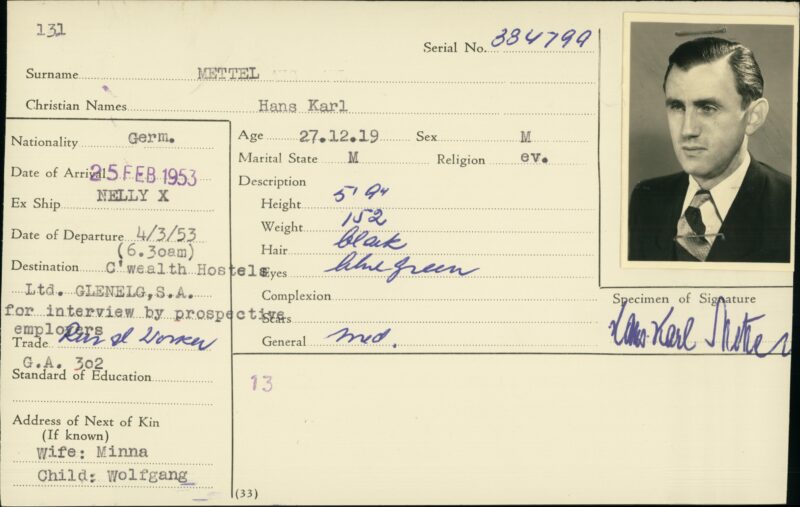 131
Serial No. 384799
Surname METTEL
Christian Names Hans Karl
Nationality Germ.
Date of Arrival 25 FEB 1953
Ex Ship NELLY X
Date of Departure 4/3/53
(6.30am)
Destination C'wealth Hostels
Ltd. GLENELG, S.A.
for interview by prospective
employers
Trade Rural Worker
G.A. 302
Standard of Education
Address of Next of Kin
(If known)
Wife: Minna
Child: Wolfgang
Age 27.12.19 Sex M
Marital State M Religion ev.
Description
Height 5' 9"
Weight 152
Hair black
Eyes blue green
Complexion
Scars
General med.
13
(33)
Specimen of Signature
Hans Karl